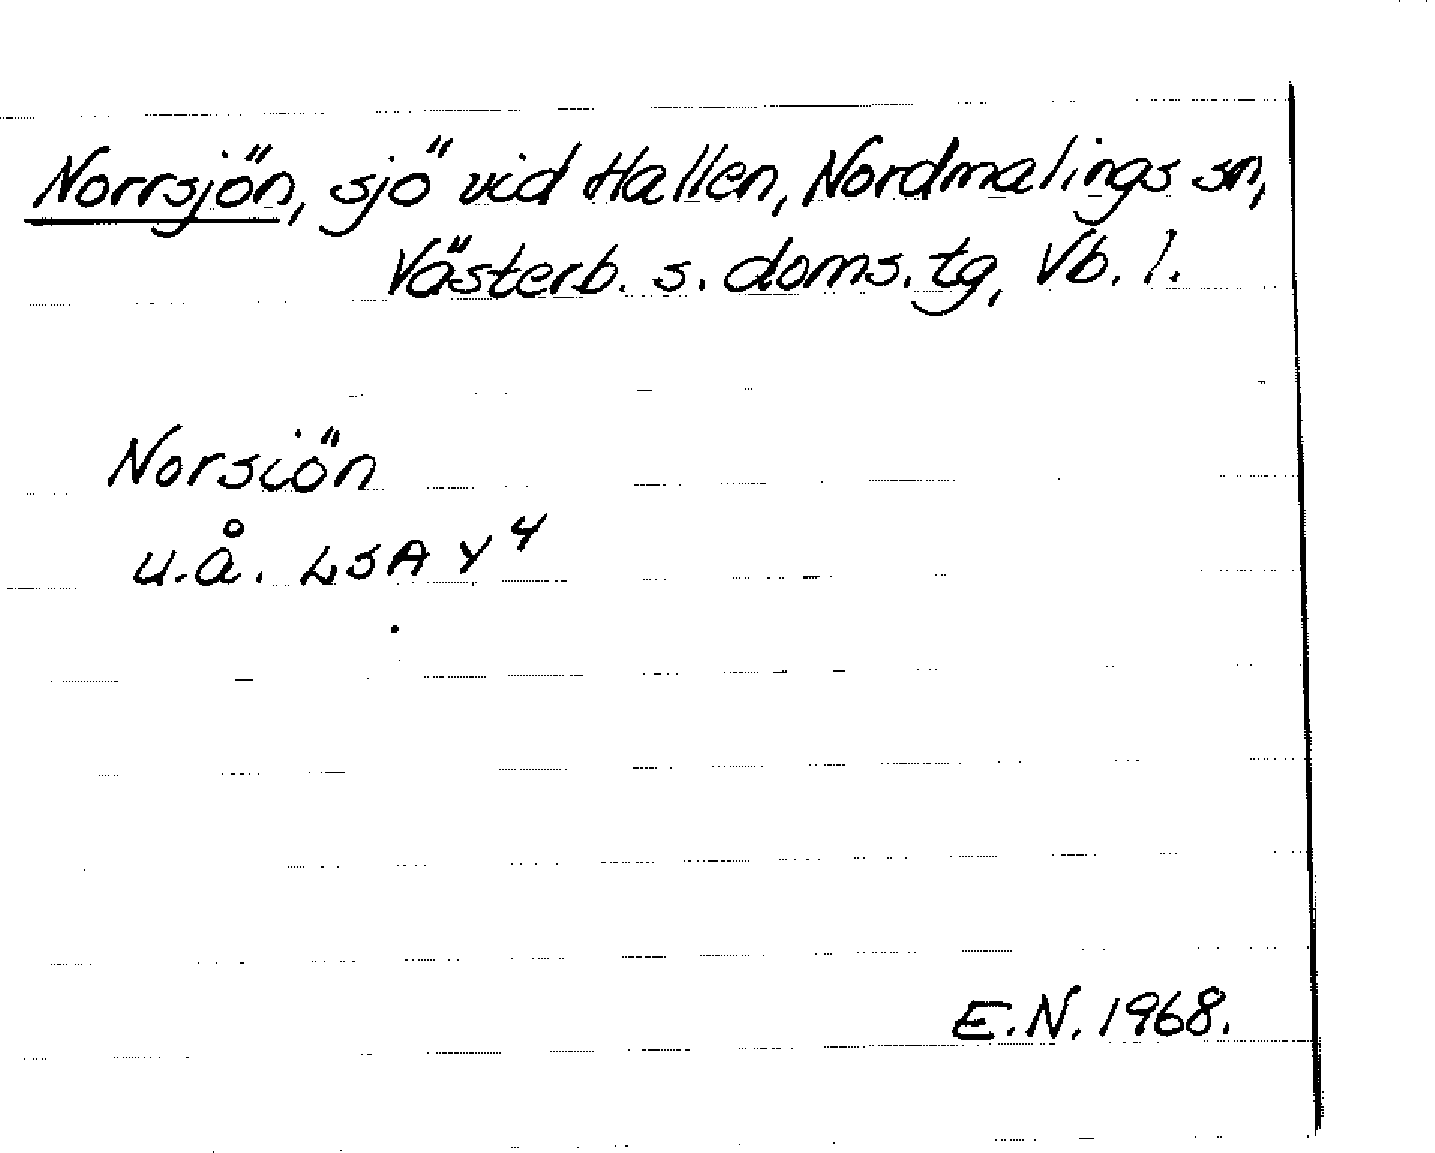 Norrsjön, sjö vid Hallen, Nordmalings sn,
Västerb. s. doms. tg, Vb. l.
Norsiön
u.å. LSA Y4
E.N. 1968.